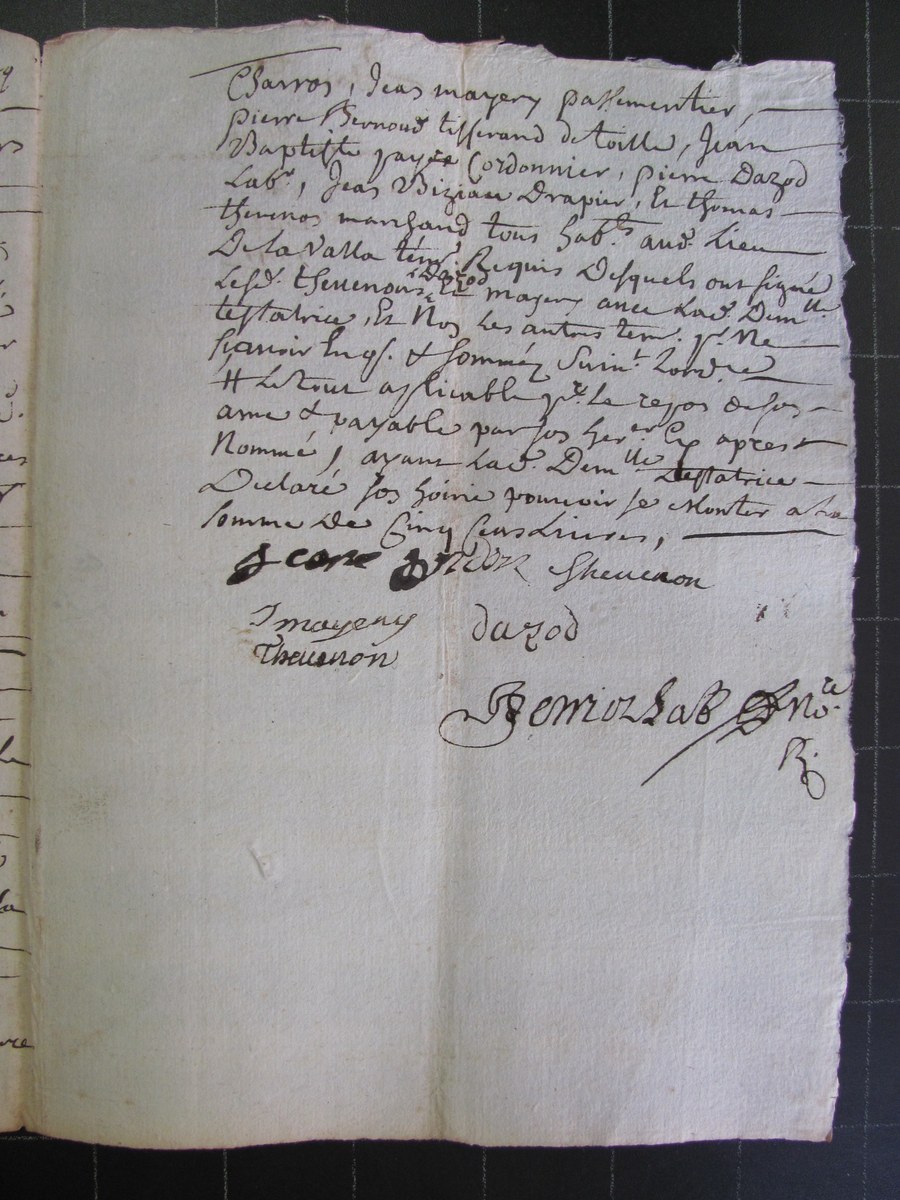 Charros, Jean mayery passementier,
pierre Bernoud tisserand de toille, Jean
Baptiste payre Cordonnier, pierre Dazod
Labr., Jean Viziau Drapier, Et thomas
thevenos marchand tous habts. aud. Lieu
De La Valla tém. Requis Desquels ont signé
Lesd. thevenons, Dazod Et mayery avec Lad. Demlle.
testatrice, Et Non Les autres tém. pr. Ne
sçavoir Enqs. & sommés suivt. Lord.ce
# Le tout applicable pr. Le repos de son
ame & payable par son herer. Cy aprest
Nommé, ayant Lad. Demlle testatrice
Declaré son hoirie pouvoir se Monter a La
somme de Cinq Cens Livres,
thevenon
J mayery dazod
Thevenon
No.re
R.